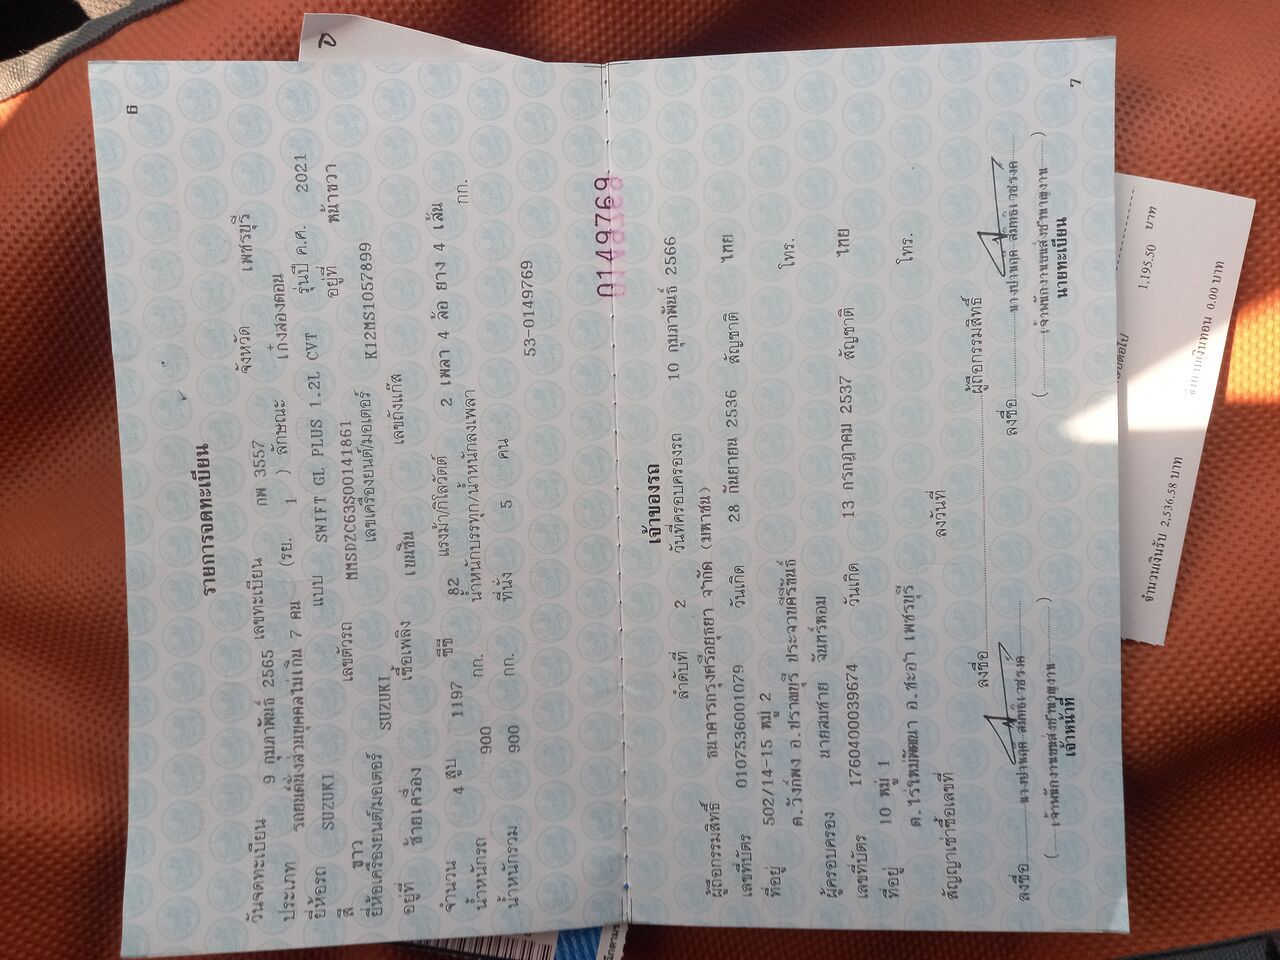 6
รายการจดทะเบียน
วันจดทะเบียน 9 กุมภาพันธ์ 2565 เลขทะเบียน กพ 3557 จังหวัด เพชรบุรี
ประเภท รถยนต์นั่งส่วนบุคคลไม่เกิน 7 คน (รย. 1 ) ลักษณะ เก๋งสองตอน
ยี่ห้อรถ SUZUKI แบบ SWIFT GL PLUS 1.2L CVT รุ่นปี ค.ศ. 2021
สี ขาว เลขตัวรถ MMSDZC63S00141861 อยู่ที่ หน้าขวา
ยี่ห้อเครื่องยนต์/มอเตอร์ SUZUKI เลขเครื่องยนต์/มอเตอร์ K12MS1057899
อยู่ที่ ซ้ายเครื่อง เชื้อเพลิง เบนซิน เลขถังแก๊ส
จำนวน 4 สูบ 1197 ซีซี 82 แรงม้า/กิโลวัตต์ 2 เพลา 4 ล้อ ยาง 4 เส้น
น้ำหนักรถ 900 กก. น้ำหนักบรรทุก/น้ำหนักลงเพลา กก.
น้ำหนักรวม 900 กก. ที่นั่ง 5 คน
53-0149769
0149769
7
เจ้าของรถ
ลำดับที่ 2 วันที่ครอบครองรถ 10 กุมภาพันธ์ 2566
ผู้ถือกรรมสิทธิ์ ธนาคารกรุงศรีอยุธยา จำกัด (มหาชน)
เลขที่บัตร 0107536001079 วันเกิด 28 กันยายน 2536 สัญชาติ ไทย
ที่อยู่ 502/14-15 หมู่ 2
ต.วังก์พง อ.ปราณบุรี ประจวบคีรีขันธ์ โทร.
ผู้ครอบครอง นายสมชาย จันทร์หอม
เลขที่บัตร 1760400039674 วันเกิด 13 กรกฎาคม 2537 สัญชาติ ไทย
ที่อยู่ 10 หมู่ 1
ต.ไร่ใหม่พัฒนา อ.ชะอำ เพชรบุรี โทร.
สัญญาเช่าซื้อเลขที่ ลงวันที่
ลงชื่อ ผู้ถือกรรมสิทธิ์
ลงชื่อ ลงชื่อ
(เจ้าพนักงานขนส่งชำนาญงาน) (เจ้าพนักงานขนส่งชำนาญงาน)
เจ้าหน้าที่ นายทะเบียน
1,195.50 บาท
จำนวนเงินรับ 2,536.58 บาท จำนวนเงินทอน 0.00 บาท